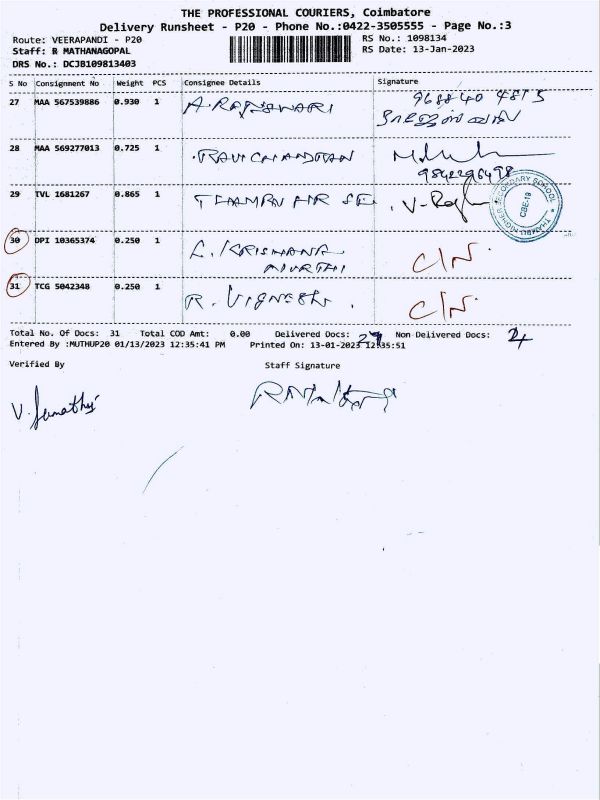 THE PROFESSIONAL COURIERS, Coimbatore
Delivery Runsheet - P20 - Phone No.:0422-3505555 - Page No.:3
Route: VEERAPANDI - P20
RS No.: 1098134
Staff: R MATHANAGOPAL
RS Date: 13-Jan-2023
DRS No.: DCJB109813403
S No Consignment No Weight PCS Consignee Details Signature
27 MAA 567539886 0.930 1 A. RAJESWARI 968840 4815
28 MAA 569277013 0.725 1 RAVICHANDRAN
9842296498
29 TVL 1681267 0.865 1 THAMBU HR SE.
THAMBU HIGHER SECONDARY SCHOOL
CBE-19
30 DPI 10365374 0.250 1 L. KRISHANA C/N
MURTHI
31 TCG 5042348 0.250 1 R. VIGNESH. C/N
Total No. Of Docs: 31 Total COD Amt: 0.00 Delivered Docs: 29 Non Delivered Docs: 2
Entered By :MUTHUP20 01/13/2023 12:35:41 PM Printed On: 13-01-2023 12:35:51
Verified By Staff Signature
V. Sumathy